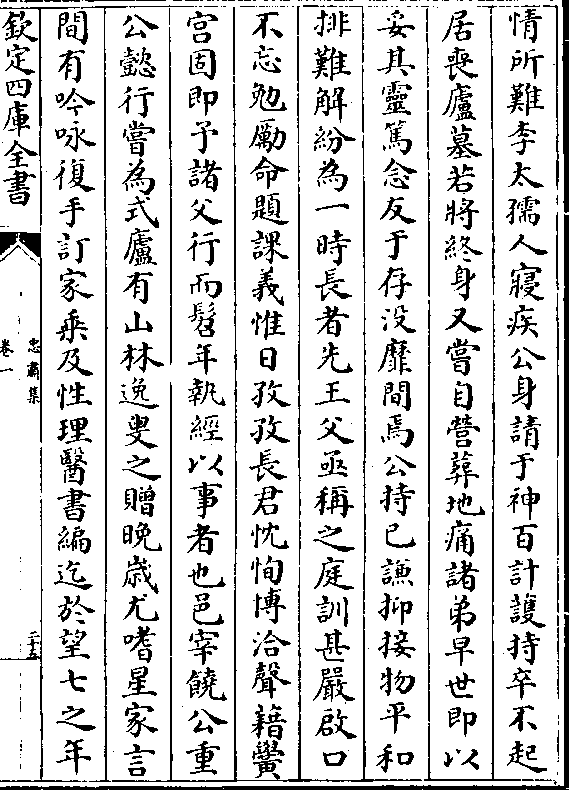 情所難李太孺人寢疾公身請于神百計護持卒不起
居喪廬墓若將終身又嘗自營葬地痛諸弟早世即以
妥其靈篤念友于存没靡間焉公持己謙抑接物平和
排難解紛為一時長者先王父亟稱之庭訓甚嚴啟口
不忘勉勵命題課義惟日孜孜長君忱恂博洽聲藉黌
宫固即予諸父行而髫年執經以事者也邑宰饒公重
公懿行嘗為式廬有山林逸叟之贈晚嵗尤嗜星家言
間有吟咏復手訂家乗及性理醫書編迄於望七之年
欽定四庫全書
忠肅集
卷一
二十五